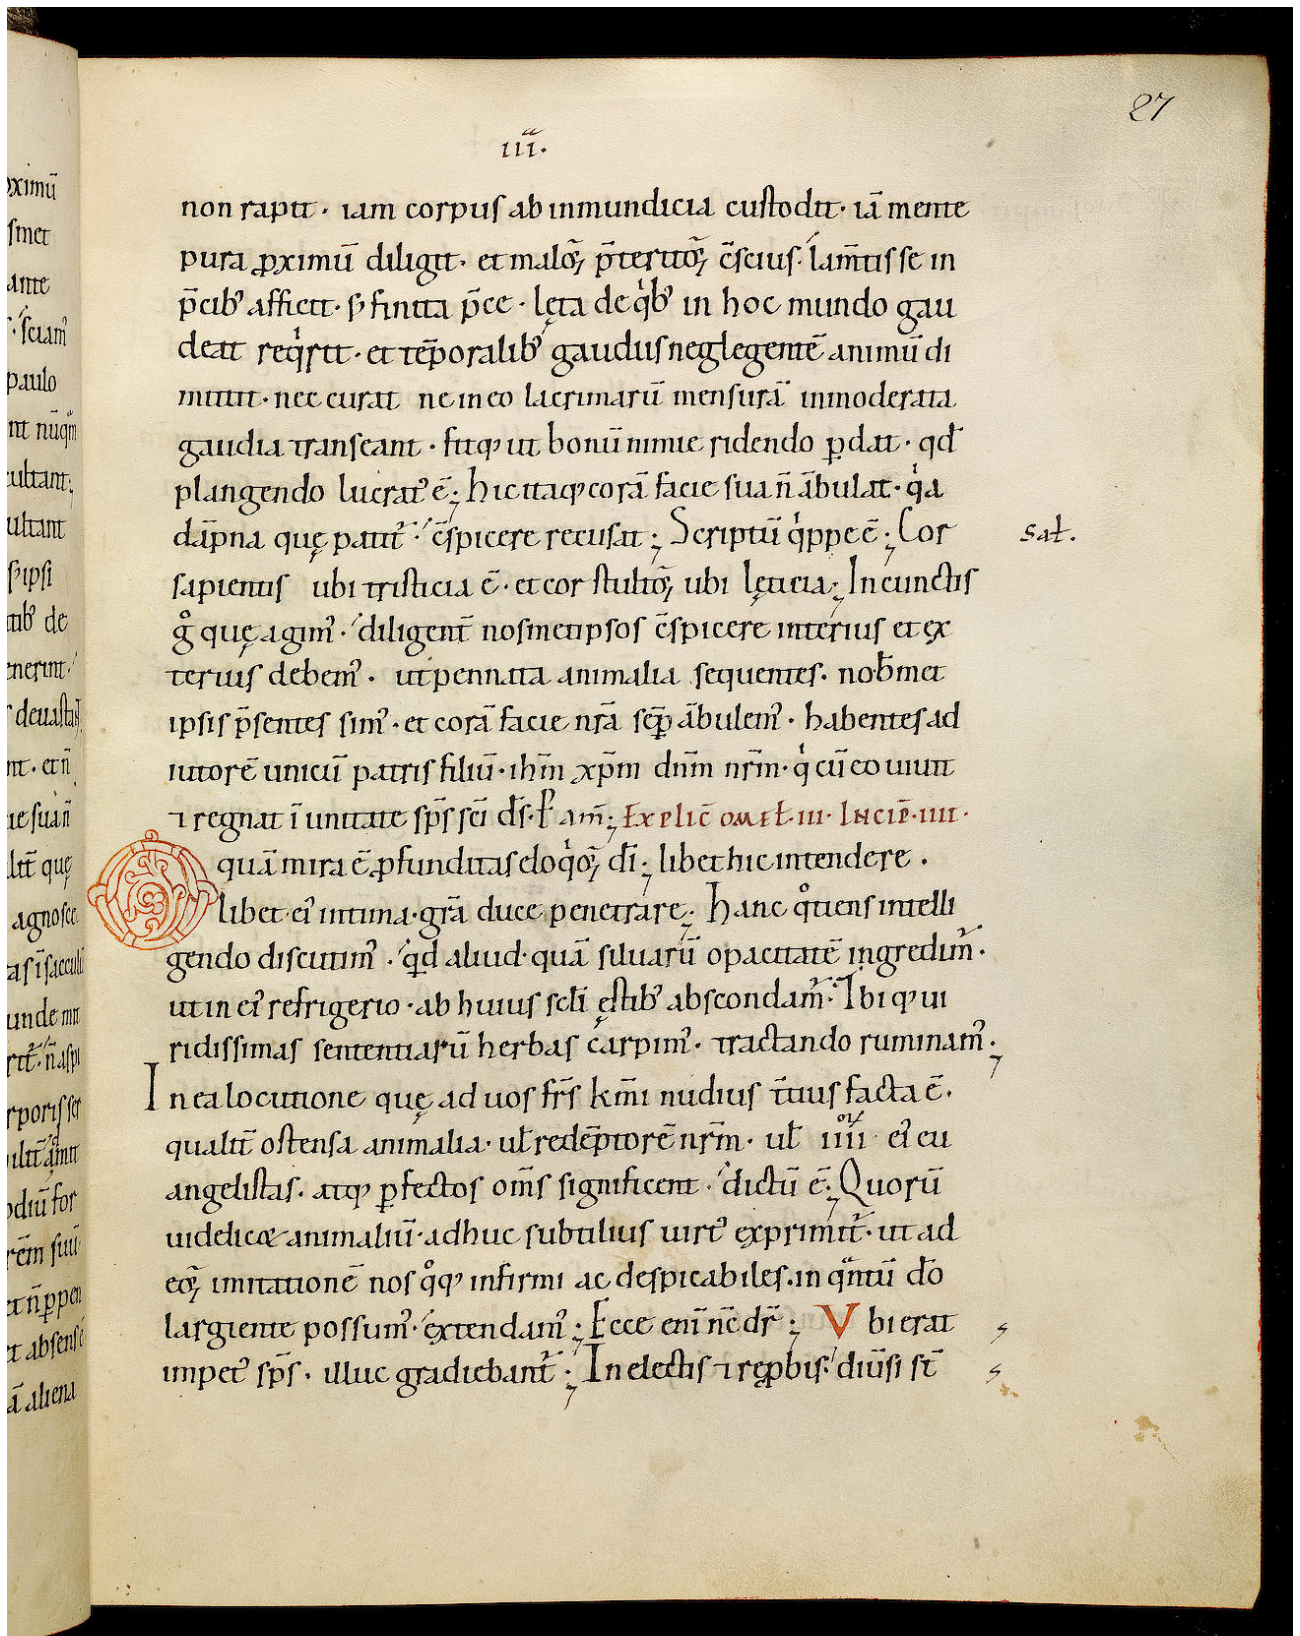 27
iii.
non rapit· iam corpus ab inmundicia custodit· iā mente
pura ꝓximū diligit· et maloꝝ p̄teritoꝝ c̄scius· lam̄tis se in
p̄cibꝰ afficit· sꝫ finita p̄ce· lęta de qͥbꝰ in hoc mundo gau
deat reqͥrit· et tēporalibꝰ gaudiis neglegentē animū di
mittit· nec curat ne in eo lacrimarū mensurā inmoderata
gaudia transeant· fitqꝫ ut bonū nimie ridendo ꝑdat· qđ
plangendo lucratꝰ ē; hic itaqꝫ corā facie sua n̄ ābulat· qͥa
dāpna quę patit̄· c̄spicere recusat; Scriptū qͥppe ē; Cor
Sal̄.
sapientis ubi tristicia ē· et cor stultoꝝ ubi lęticia; In cunctis
gͦ quę agimꝰ· diligent̄ nosmetipsos c̄spicere interius et ex
terius debemꝰ· ut pennata animalia sequentes· nob̄met
ipsis p̄sentes simꝰ· et corā facie nr̄a sēꝑ ābulemꝰ· habentes ad
iutorē unicū patris filiū· ih̄m xp̄m dn̄m nr̄m· qͥ cū eo uiuit
⁊ regnat ī unitate sp̄s sc̄i d̄s· P am̄; Explic̄ omel̄· iii· Incip̄· iiii·
O quā mira ē ꝓfunditas eloqͥoꝝ dī; libet hic intendere.
libet eiꝰ intima· gr̄a duce penetrare; Hanc qͦtiens intelli
gendo discutimꝰ· qͥd aliud· quā siluarū opacitatē ingredim̄·
ut in eiꝰ refrigerio· ab huius scl̄i ęstibꝰ abscondam̄· Ibi qꝫ ui
ridissimas sententiarū herbas carpimꝰ· tractando ruminamꝰ;
In ea locutione quę ad uos fr̄s km̄i nudius t̄tius facta ē·
qualit̄ ostensa animalia· ul̄ redēptorē nr̄m· ul̄ iiiiᵒʳ eiꝰ eu
angelistas· atqꝫ ꝑfectos om̄s significent· dictū ē; Quorū
uidelicæ animaliū· adhuc subtilius uirtꝰ exprimit̄· ut ad
eoꝝ imitationē nos qͦqꝫ infirmi ac despicabiles· in qͣntū dō
largiente possumꝰ· extendamꝰ; Ecce enī nc̄ dr̄; Vbi erat
impetꝰ sp̄s· illuc gradiebant̄; In electis ⁊ reꝓbis· diūsi st̄